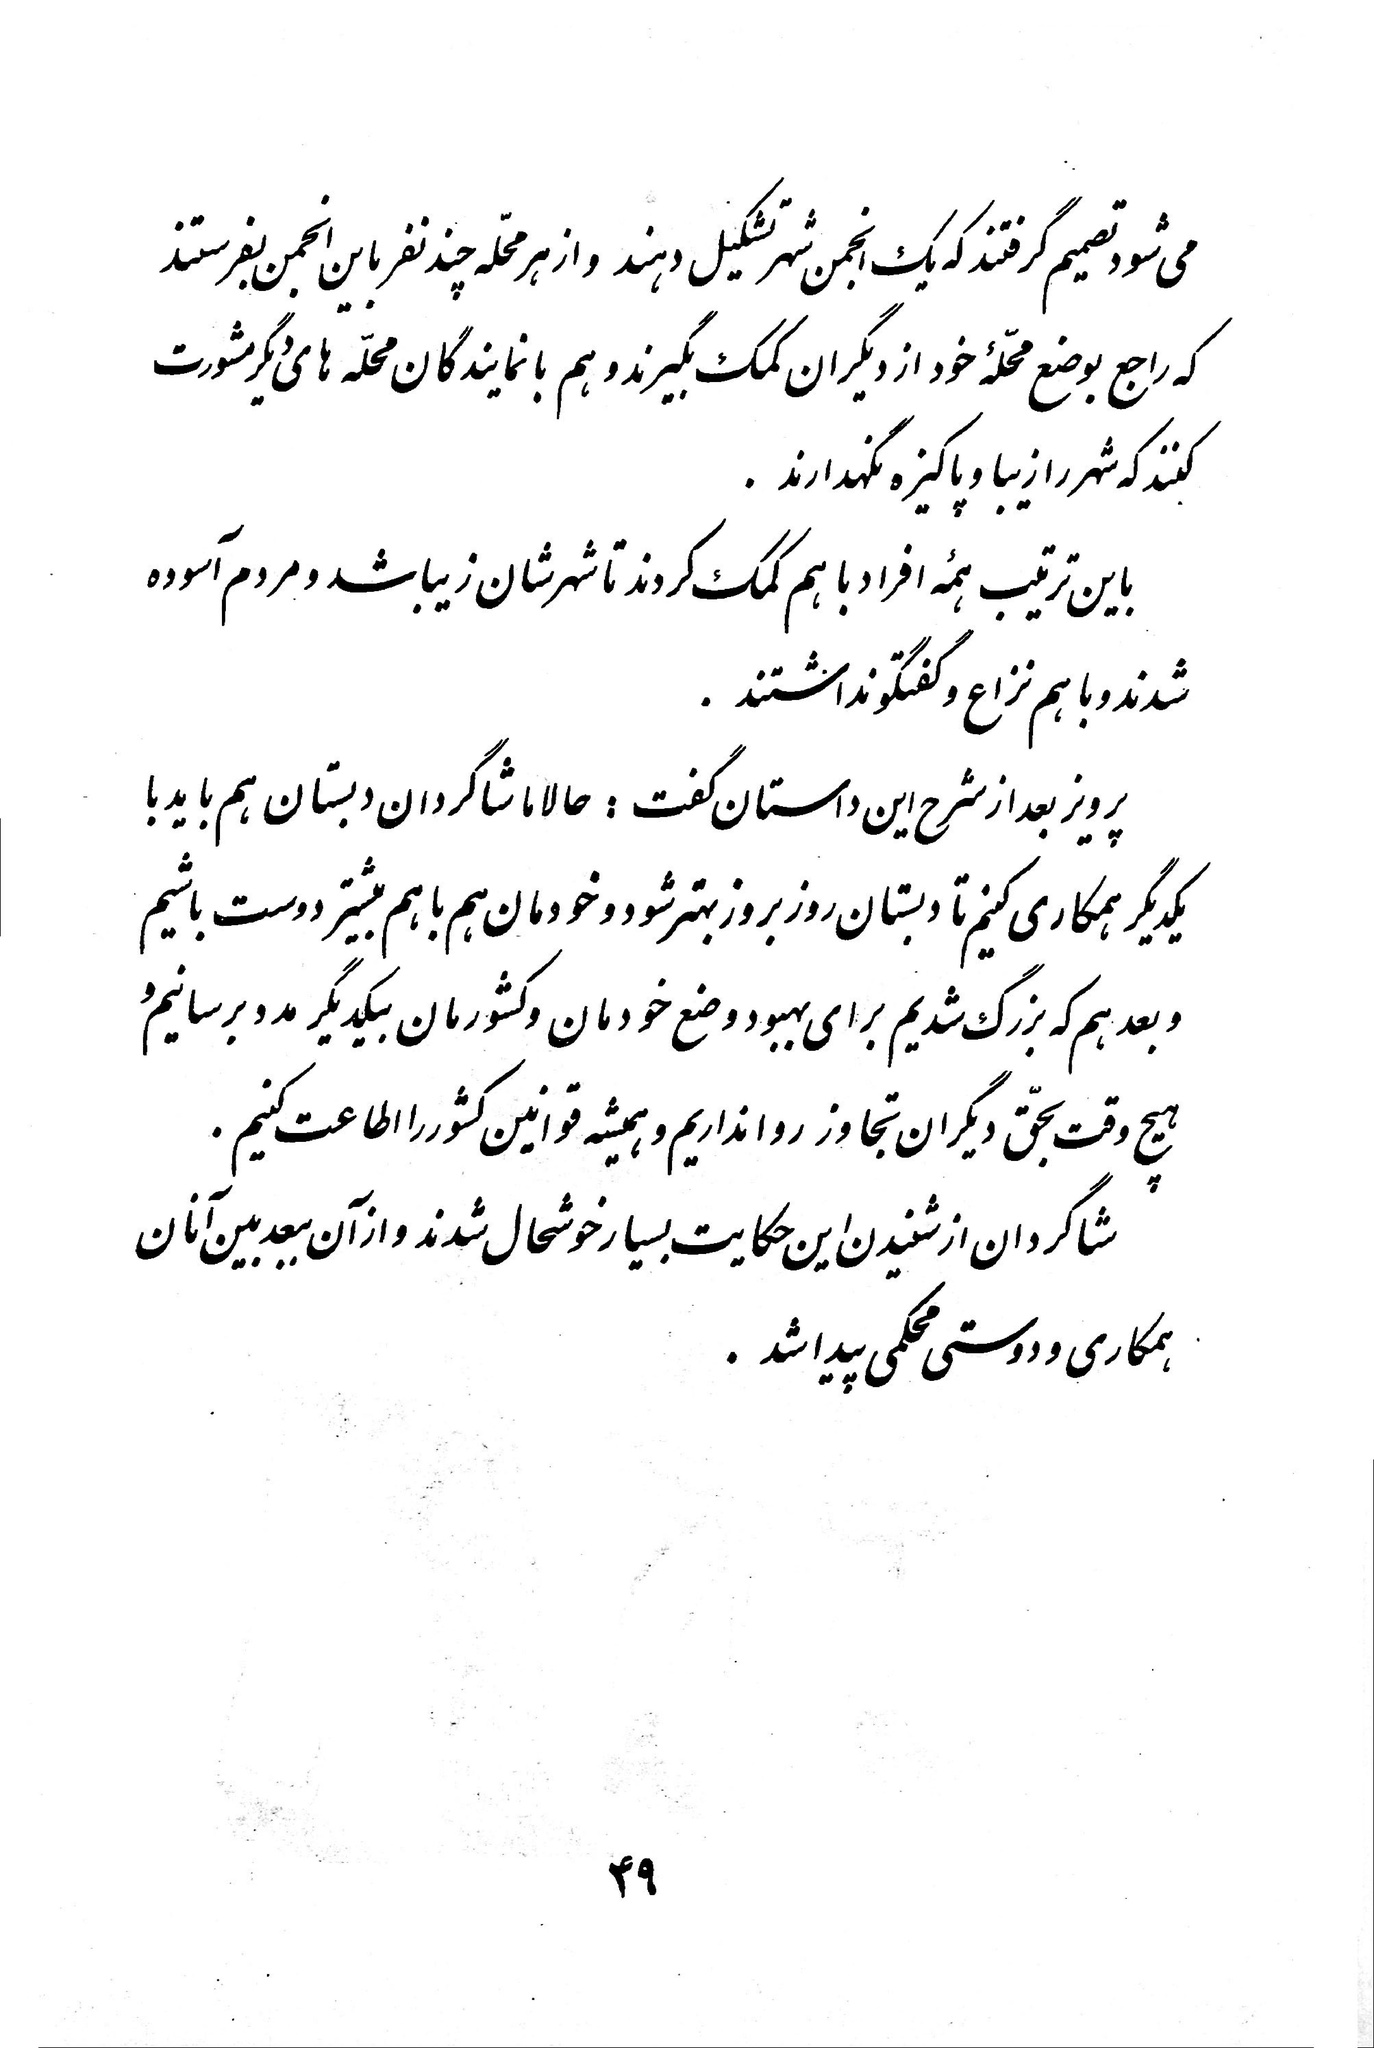 می‌شود تصمیم گرفتند که یک انجمن شهر تشکیل دهند و از هر محلّه چند نفر باین انجمن بفرستند
که راجع بوضع محلّهٔ خود از دیگران کمک بگیرند و هم با نمایندگان محلّه های دیگر مشورت
کنند که شهر را زیبا و پاکیزه نگهدارند .
باین ترتیب همهٔ افراد با هم کمک کردند تا شهرشان زیبا شد و مردم آسوده
شدند و با هم نزاع و گفتگو نداشتند .
پرویز بعد از شرح این داستان گفت : حالا ما شاگردان دبستان هم باید با
یکدیگر همکاری کنیم تا دبستان روز بروز بهتر شود و خودمان هم با هم بیشتر دوست باشیم
و بعد هم که بزرگ شدیم برای بهبود وضع خودمان و کشورمان بیکدیگر مدد برسانیم و
هیچ وقت بحقّ دیگران تجاوز روا نداریم و همیشه قوانین کشور را اطاعت کنیم .
شاگردان از شنیدن این حکایت بسیار خوشحال شدند و از آن ببعد بین آنان
همکاری و دوستی محکمی پیدا شد .
۴۹